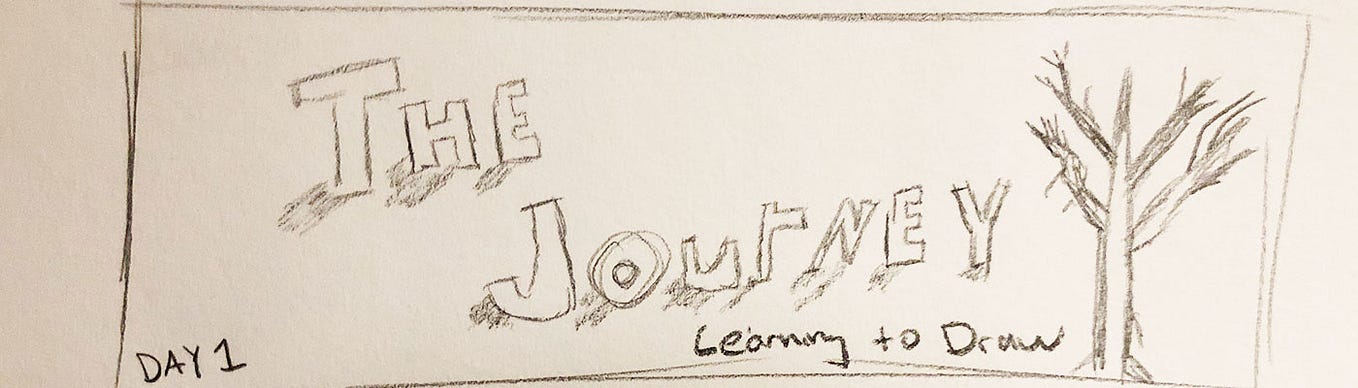 THE
JOURNEY
Learning to Draw
DAY 1